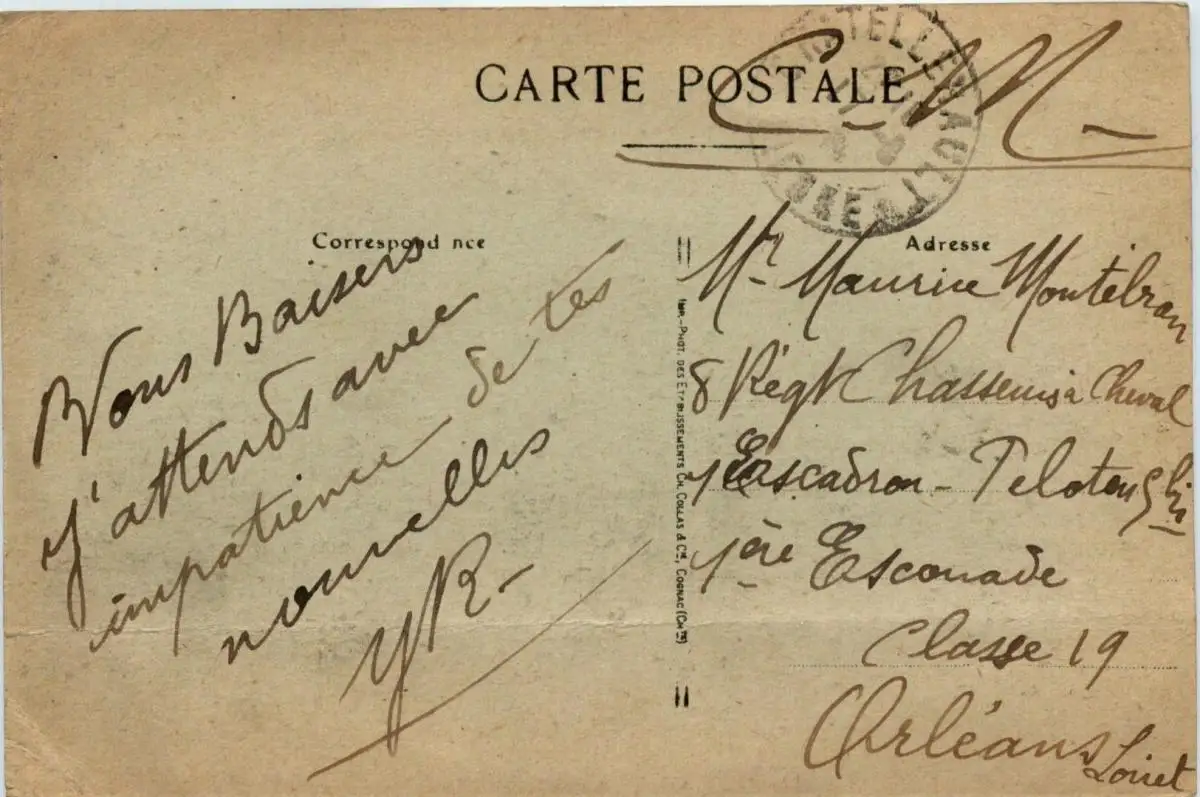 CARTE POSTALE
C. M.
CHATELLERAULT
Correspond nce
Adresse
Nous Baisers
J'attends avec
impatience de tes
nouvelles
YR
IMP.-PHOT. DES ETABLISSEMENTS CH. COLLAS & Cie, COGNAC (Chte)
Mr Maurice Montebran
8 Régt Chasseurs à Cheval
1er Escadron - Peloton
1ère Esconade
Classe 19
Orléans
Loiret